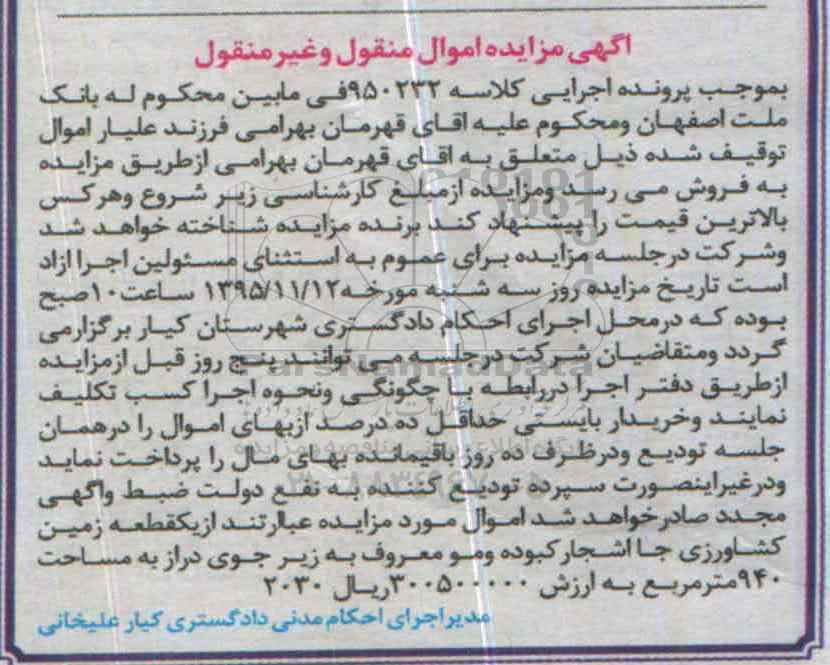 آگهی مزایده اموال منقول و غیر منقول
بموجب پرونده اجرایی کلاسه ۹۵۰۲۳۲فی مابین محکوم له بانک
ملت اصفهان ومحکوم علیه اقای قهرمان بهرامی فرزند علیار اموال
توقیف شده ذیل متعلق به اقای قهرمان بهرامی ازطریق مزایده
به فروش می رسد ومزایده ازمبلغ کارشناسی زیر شروع وهرکس
بالاترین قیمت را پیشنهاد کند برنده مزایده شناخته خواهد شد
وشرکت درجلسه مزایده برای عموم به استثنای مسئولین اجرا ازاد
است تاریخ مزایده روز سه شنبه مورخه۱۳۹۵/۱۱/۱۲ ساعت۱۰صبح
بوده که درمحل اجرای احکام دادگستری شهرستان کیار برگزارمی
گردد ومتقاضیان شرکت درجلسه می توانند پنج روز قبل ازمزایده
ازطریق دفتر اجرا دررابطه با چگونگی ونحوه اجرا کسب تکلیف
نمایند وخریدار بایستی حداقل ده درصد ازبهای اموال را درهمان
جلسه تودیع ودرظرف ده روز باقیمانده بهای مال را پرداخت نماید
ودرغیراینصورت سپرده تودیع کننده به نفع دولت ضبط واگهی
مجدد صادرخواهد شد اموال مورد مزایده عبارتند ازیکقطعه زمین
کشاورزی جا اشجار کبوده ومو معروف به زیر جوی دراز به مساحت
۹۴۰مترمربع به ارزش ۳۰۰۵۰۰۰۰۰ریال ۲۰۳۰
مدیراجرای احکام مدنی دادگستری کیار علیخانی
ParsNamadData